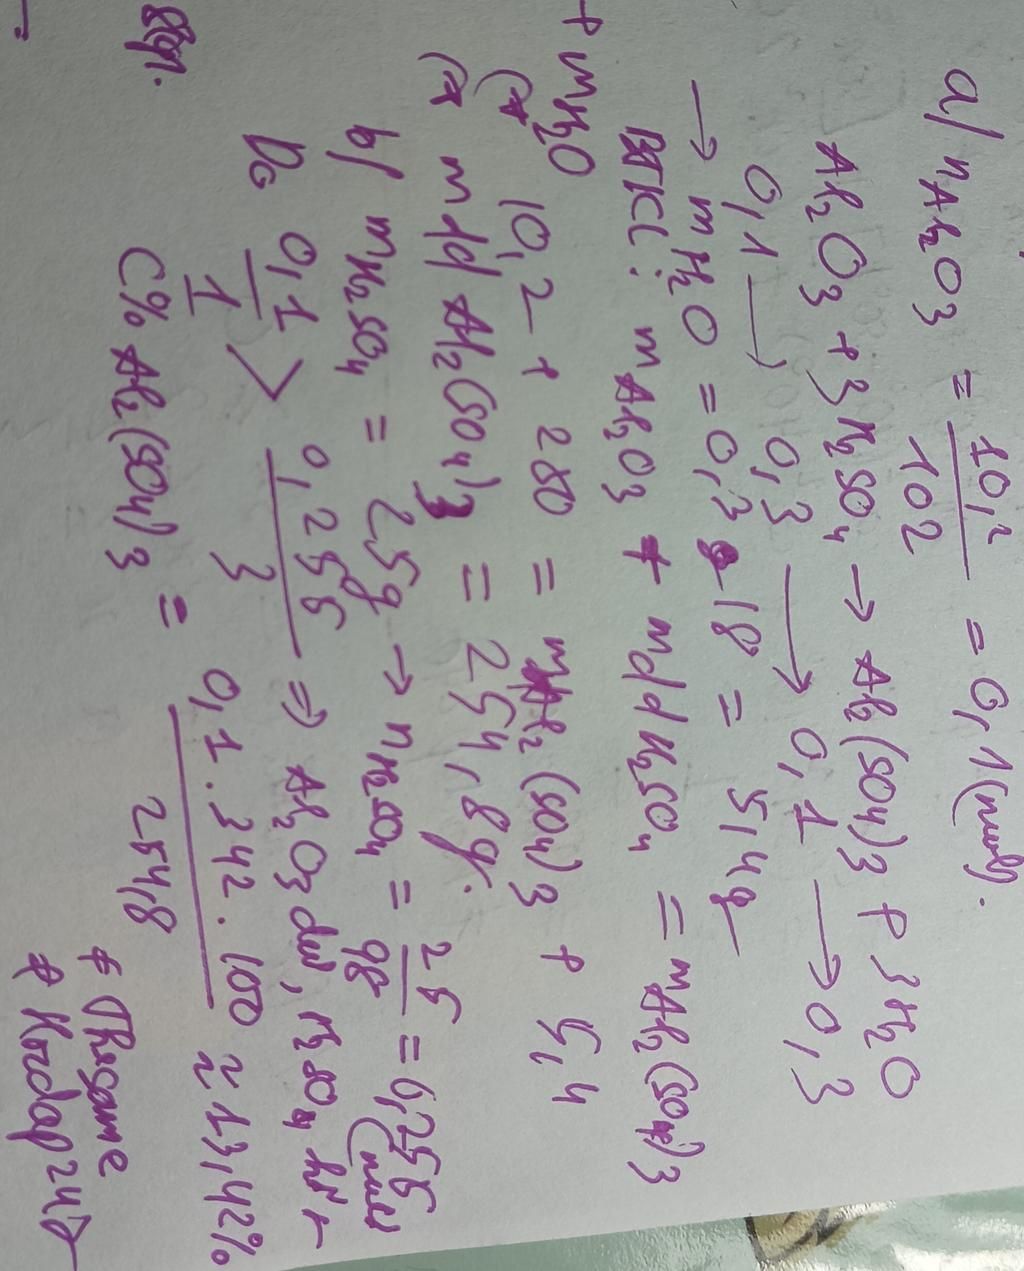 a/ nAl₂O₃ = 10,2/102 = 0,1 (mol).
Al₂O₃ + 3H₂SO₄ → Al₂(SO₄)₃ + 3H₂O
0,1 → 0,3 → 0,1 → 0,3
→ mH₂O = 0,3 . 18 = 5,4g
BTKL: mAl₂O₃ + mdd H₂SO₄ = mAl₂(SO₄)₃
+ mH₂O
10,2 + 250 = mAl₂(SO₄)₃ + 5,4
mdd Al₂(SO₄)₃ = 254,8g.
b/ mH₂SO₄ = 25g → nH₂SO₄ = 25/98 = 0,255 (mol)
Do 0,1/1 > 0,255/3 ⇒ Al₂O₃ dư, H₂SO₄ hết
C% Al₂(SO₄)₃ = 0,1 . 342 . 100/254,8 ≈ 13,42%
# Thegame
# Hoidap247